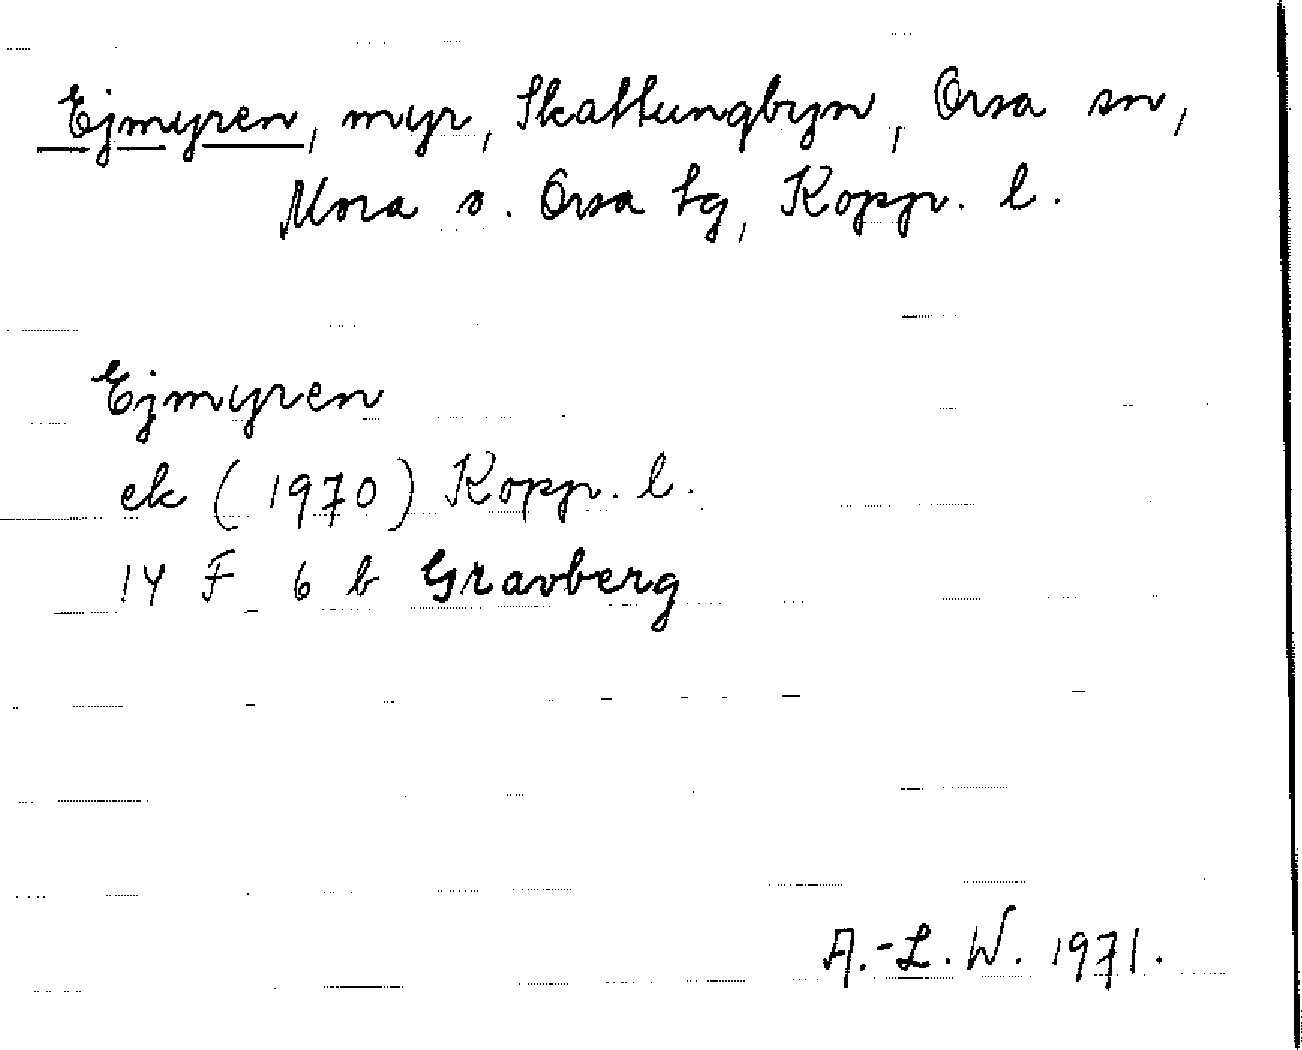 Ejmyren, myr, Skattungbyn, Orsa sn,
Mora o. Orsa tg, Kopp. l.
Ejmyren
ek (1970) Kopp. l.
14 F 6 b Gravberg
A.-L. W. 1971.